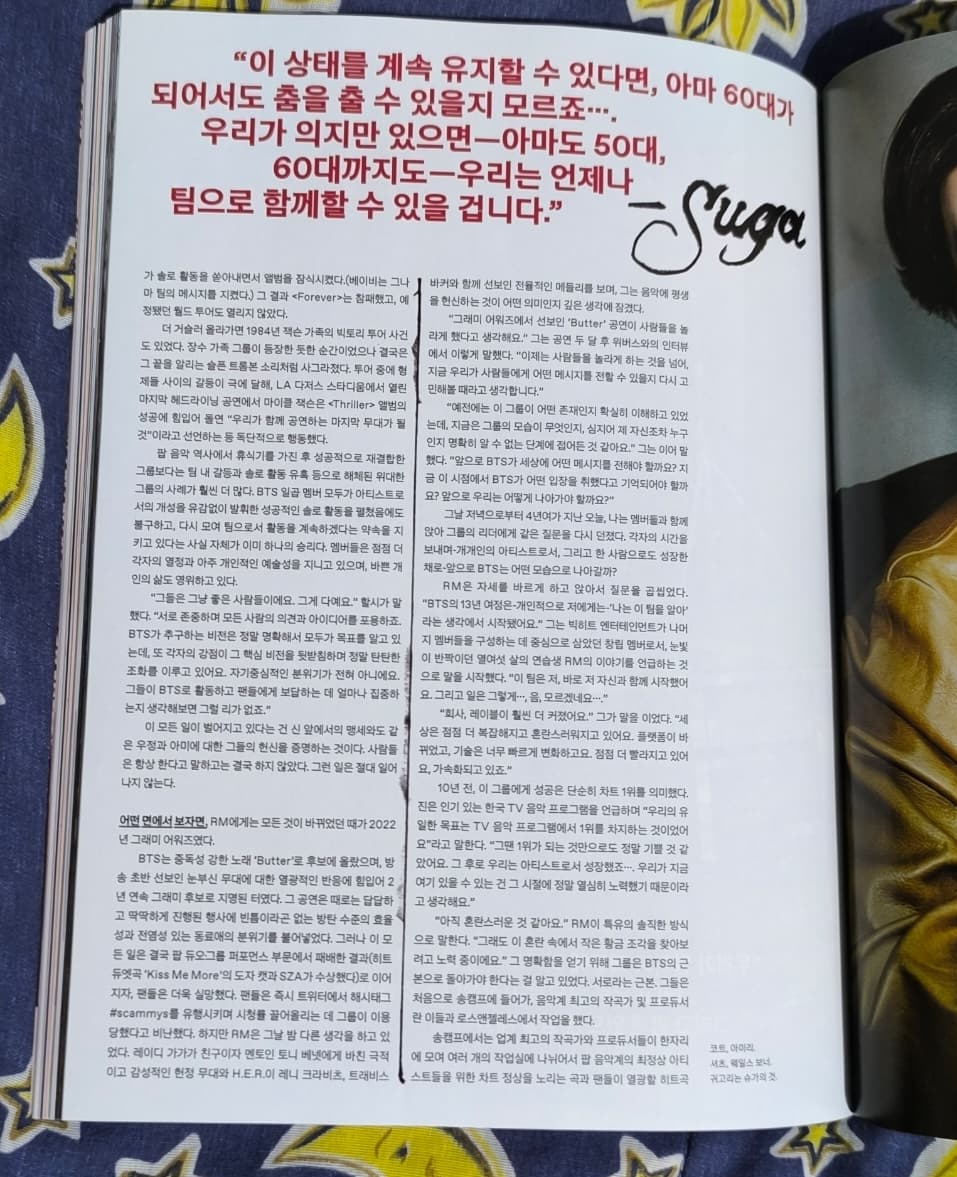 “이 상태를 계속 유지할 수 있다면, 아마 60대가
되어서도 춤을 출 수 있을지 모르죠….
우리가 의지만 있으면—아마도 50대,
60대까지도—우리는 언제나
팀으로 함께할 수 있을 겁니다.”
– Suga
가 솔로 활동을 쏟아내면서 앨범을 잠식시켰다.(베이비는 그나
마 팀의 메시지를 지켰다.) 그 결과 <Forever>는 참패했고, 예
정됐던 월드 투어도 열리지 않았다.
더 거슬러 올라가면 1984년 잭슨 가족의 빅토리 투어 사건
도 있었다. 장수 가족 그룹이 등장한 듯한 순간이었으나 결국은
그 끝을 알리는 슬픈 트롬본 소리처럼 사그라졌다. 투어 중에 형
제들 사이의 갈등이 극에 달해, LA 다저스 스타디움에서 열린
마지막 헤드라이닝 공연에서 마이클 잭슨은 <Thriller> 앨범의
성공에 힘입어 돌연 “우리가 함께 공연하는 마지막 무대가 될
것”이라고 선언하는 등 독단적으로 행동했다.
팝 음악 역사에서 휴식기를 가진 후 성공적으로 재결합한
그룹보다는 팀 내 갈등과 솔로 활동 유혹 등으로 해체된 위대한
그룹의 사례가 훨씬 더 많다. BTS 일곱 멤버 모두가 아티스트로
서의 개성을 유감없이 발휘한 성공적인 솔로 활동을 펼쳤음에도
불구하고, 다시 모여 팀으로서 활동을 계속하겠다는 약속을 지
키고 있다는 사실 자체가 이미 하나의 승리다. 멤버들은 점점 더
각자의 열정과 아주 개인적인 예술성을 지니고 있으며, 바쁜 개
인의 삶도 영위하고 있다.
“그들은 그냥 좋은 사람들이에요. 그게 다예요.” 할시가 말
했다. “서로 존중하며 모든 사람의 의견과 아이디어를 포용하죠.
BTS가 추구하는 비전은 정말 명확해서 모두가 목표를 알고 있
는데, 또 각자의 강점이 그 핵심 비전을 뒷받침하며 정말 탄탄한
조화를 이루고 있어요. 자기중심적인 분위기가 전혀 아니에요.
그들이 BTS로 활동하고 팬들에게 보답하는 데 얼마나 집중하
는지 생각해보면 그럴 리가 없죠.”
이 모든 일이 벌어지고 있다는 건 신 앞에서의 맹세와도 같
은 우정과 아미에 대한 그들의 헌신을 증명하는 것이다. 사람들
은 항상 한다고 말하고는 결국 하지 않았다. 그런 일은 절대 일어
나지 않는다.
어떤 면에서 보자면, RM에게는 모든 것이 바뀌었던 때가 2022
년 그래미 어워즈였다.
BTS는 중독성 강한 노래 ‘Butter’로 후보에 올랐으며, 방
송 초반 선보인 눈부신 무대에 대한 열광적인 반응에 힘입어 2
년 연속 그래미 후보로 지명된 터였다. 그 공연은 때로는 답답하
고 딱딱하게 진행된 행사에 빈틈이라곤 없는 방탄 수준의 효율
성과 전염성 있는 동료애의 분위기를 불어넣었다. 그러나 이 모
든 일은 결국 팝 듀오그룹 퍼포먼스 부문에서 패배한 결과(히트
듀엣곡 ‘Kiss Me More’의 도자 캣과 SZA가 수상했다)로 이어
지자, 팬들은 더욱 실망했다. 팬들은 즉시 트위터에서 해시태그
#scammys를 유행시키며 시청률 끌어올리는 데 그룹이 이용
당했다고 비난했다. 하지만 RM은 그날 밤 다른 생각을 하고 있
었다. 레이디 가가가 친구이자 멘토인 토니 베넷에게 바친 극적
이고 감성적인 헌정 무대와 H.E.R.이 레니 크라비츠, 트래비스
바커와 함께 선보인 전율적인 메들리를 보며, 그는 음악에 평생
을 헌신하는 것이 어떤 의미인지 깊은 생각에 잠겼다.
“그래미 어워즈에서 선보인 ‘Butter’ 공연이 사람들을 놀
라게 했다고 생각해요.” 그는 공연 두 달 후 위버스와의 인터뷰
에서 이렇게 말했다. “이제는 사람들을 놀라게 하는 것을 넘어,
지금 우리가 사람들에게 어떤 메시지를 전할 수 있을지 다시 고
민해볼 때라고 생각합니다.”
“예전에는 이 그룹이 어떤 존재인지 확실히 이해하고 있었
는데, 지금은 그룹의 모습이 무엇인지, 심지어 제 자신조차 누구
인지 명확히 알 수 없는 단계에 접어든 것 같아요.” 그는 이어 말
했다. “앞으로 BTS가 세상에 어떤 메시지를 전해야 할까요? 지
금 이 시점에서 BTS가 어떤 입장을 취했다고 기억되어야 할까
요? 앞으로 우리는 어떻게 나아가야 할까요?”
그날 저녁으로부터 4년여가 지난 오늘, 나는 멤버들과 함께
앉아 그룹의 리더에게 같은 질문을 다시 던졌다. 각자의 시간을
보내며-개개인의 아티스트로서, 그리고 한 사람으로도 성장한
채로-앞으로 BTS는 어떤 모습으로 나아갈까?
RM은 자세를 바르게 하고 앉아서 질문을 곱씹었다.
“BTS의 13년 여정은-개인적으로 저에게는-‘나는 이 팀을 알아’
라는 생각에서 시작됐어요.” 그는 빅히트 엔터테인먼트가 나머
지 멤버들을 구성하는 데 중심으로 삼았던 창립 멤버로서, 눈빛
이 반짝이던 열여섯 살의 연습생 RM의 이야기를 언급하는 것
으로 말을 시작했다. “이 팀은 저, 바로 저 자신과 함께 시작했어
요. 그리고 일은 그렇게…, 음, 모르겠네요….”
“회사, 레이블이 훨씬 더 커졌어요.” 그가 말을 이었다. “세
상은 점점 더 복잡해지고 혼란스러워지고 있어요. 플랫폼이 바
뀌었고, 기술은 너무 빠르게 변화하고요. 점점 더 빨라지고 있어
요, 가속화되고 있죠.”
10년 전, 이 그룹에게 성공은 단순히 차트 1위를 의미했다.
진은 인기 있는 한국 TV 음악 프로그램을 언급하며 “우리의 유
일한 목표는 TV 음악 프로그램에서 1위를 차지하는 것이었어
요”라고 말한다. “그땐 1위가 되는 것만으로도 정말 기쁠 것 같
았어요. 그 후로 우리는 아티스트로서 성장했죠…. 우리가 지금
여기 있을 수 있는 건 그 시절에 정말 열심히 노력했기 때문이라
고 생각해요.”
“아직 혼란스러운 것 같아요.” RM이 특유의 솔직한 방식
으로 말한다. “그래도 이 혼란 속에서 작은 황금 조각을 찾아보
려고 노력 중이에요.” 그 명확함을 얻기 위해 그룹은 BTS의 근
본으로 돌아가야 한다는 걸 알고 있었다. 서로라는 근본. 그들은
처음으로 송캠프에 들어가, 음악계 최고의 작곡가 및 프로듀서
란 이들과 로스앤젤레스에서 작업을 했다.
송캠프에서는 업계 최고의 작곡가와 프로듀서들이 한자리
에 모여 여러 개의 작업실에 나뉘어서 팝 음악계의 최정상 아티
스트들을 위한 차트 정상을 노리는 곡과 팬들이 열광할 히트곡
코트, 아미리.
셔츠, 웨일스 보너.
귀고리는 슈가의 것.